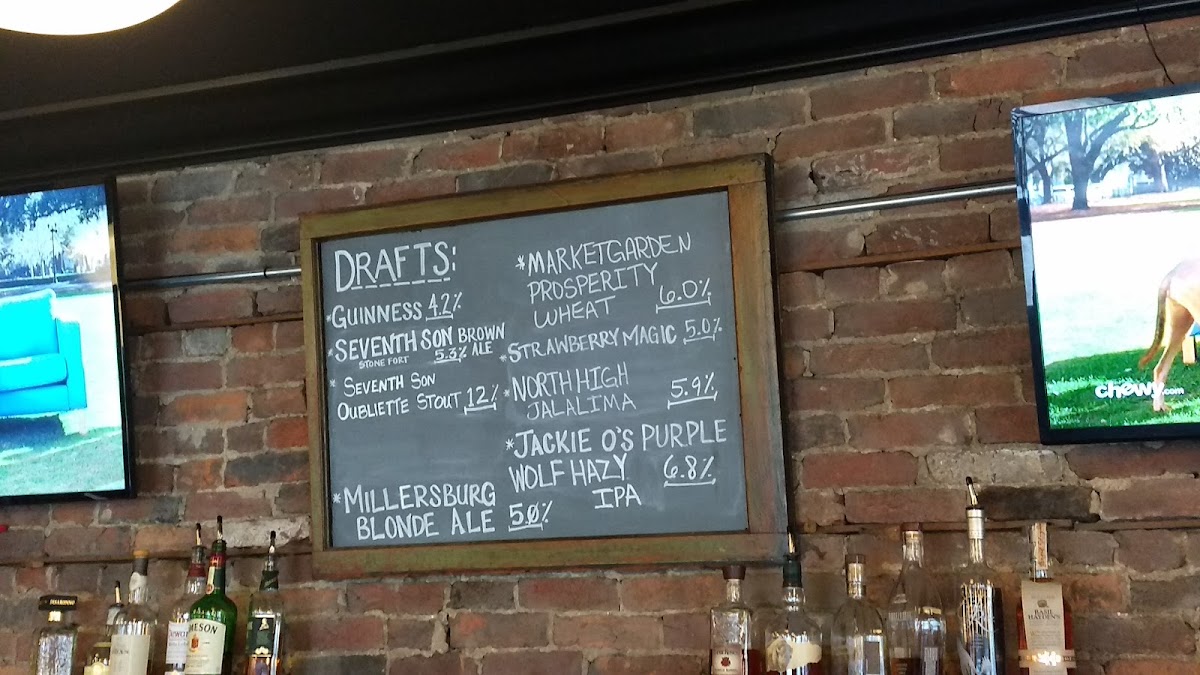 DRAFTS:
*GUINNESS 4.2%
*SEVENTH SON BROWN
STONE FORT 5.3% ALE
* SEVENTH SON
OUBLIETTE STOUT 12%
*MILLERSBURG
BLONDE ALE 5.0%
*MARKETGARDEN
PROSPERITY
WHEAT 6.0%
*STRAWBERRY MAGIC 5.0%
*NORTH HIGH
JALALIMA 5.9%
*JACKIE O'S PURPLE
WOLF HAZY 6.8%
IPA
chewy.com
JAMESON
BASIL
HAYDEN'S